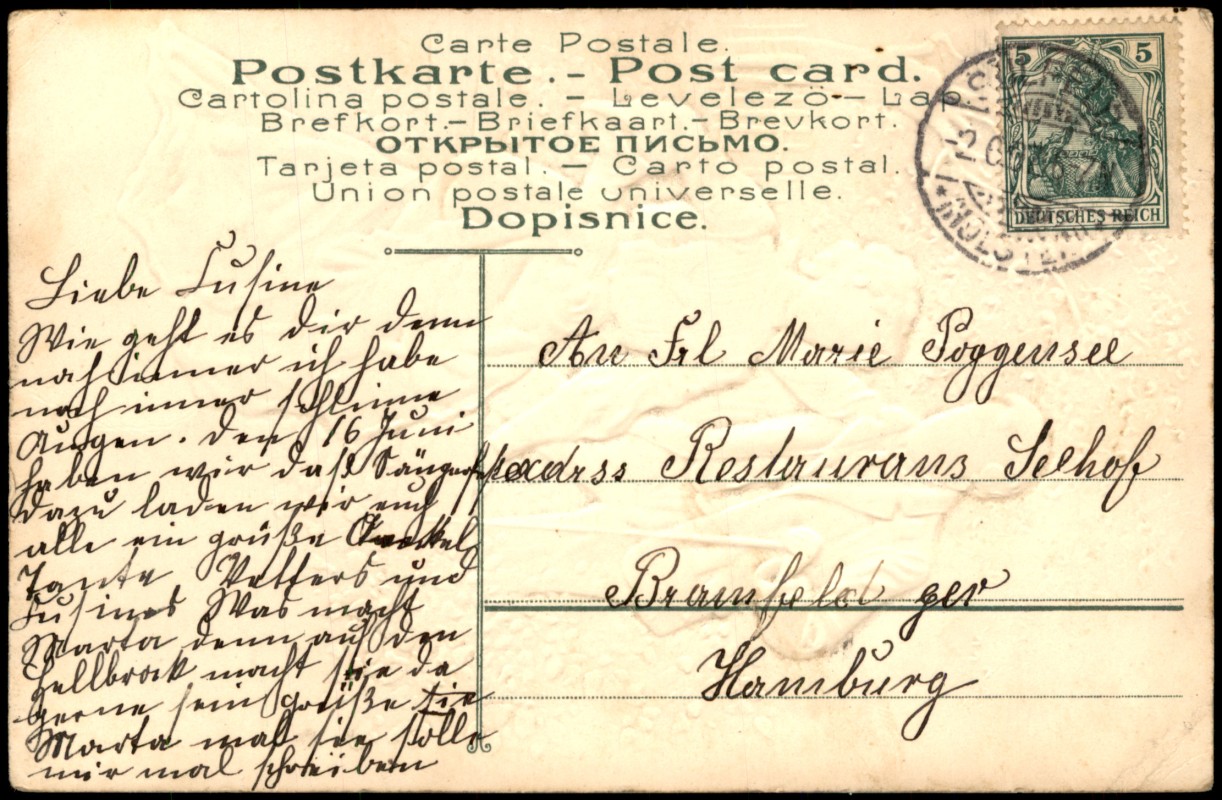 Carte Postale.
Postkarte. - Post card.
Cartolina postale. - Levelezö - Lap.
Brefkort. - Briefkaart. - Brevkort.
ОТКРЫТОЕ ПИСЬМО.
Tarjeta postal. - Carto postal.
Union postale universelle.
Dopisnice.
5 5
DEUTSCHES REICH
Liebe Cusine
Wie geht es dir denn
noch immer ich habe
noch imer schlimme
Augen. Den 16 Juni
haben wir daß Sängerfest
dazu laden wir euch
alle ein grüße Onkel
Tante Vetters und
Cusines Was macht
Marta denn auf den
Hellbrock macht sie da
gerne sein grüße sie
Marta mal sie solle
mir mal schreiben
An Frl Marie Poggensee
adrss Restaurans Seehof
Bramfeld
Hamburg